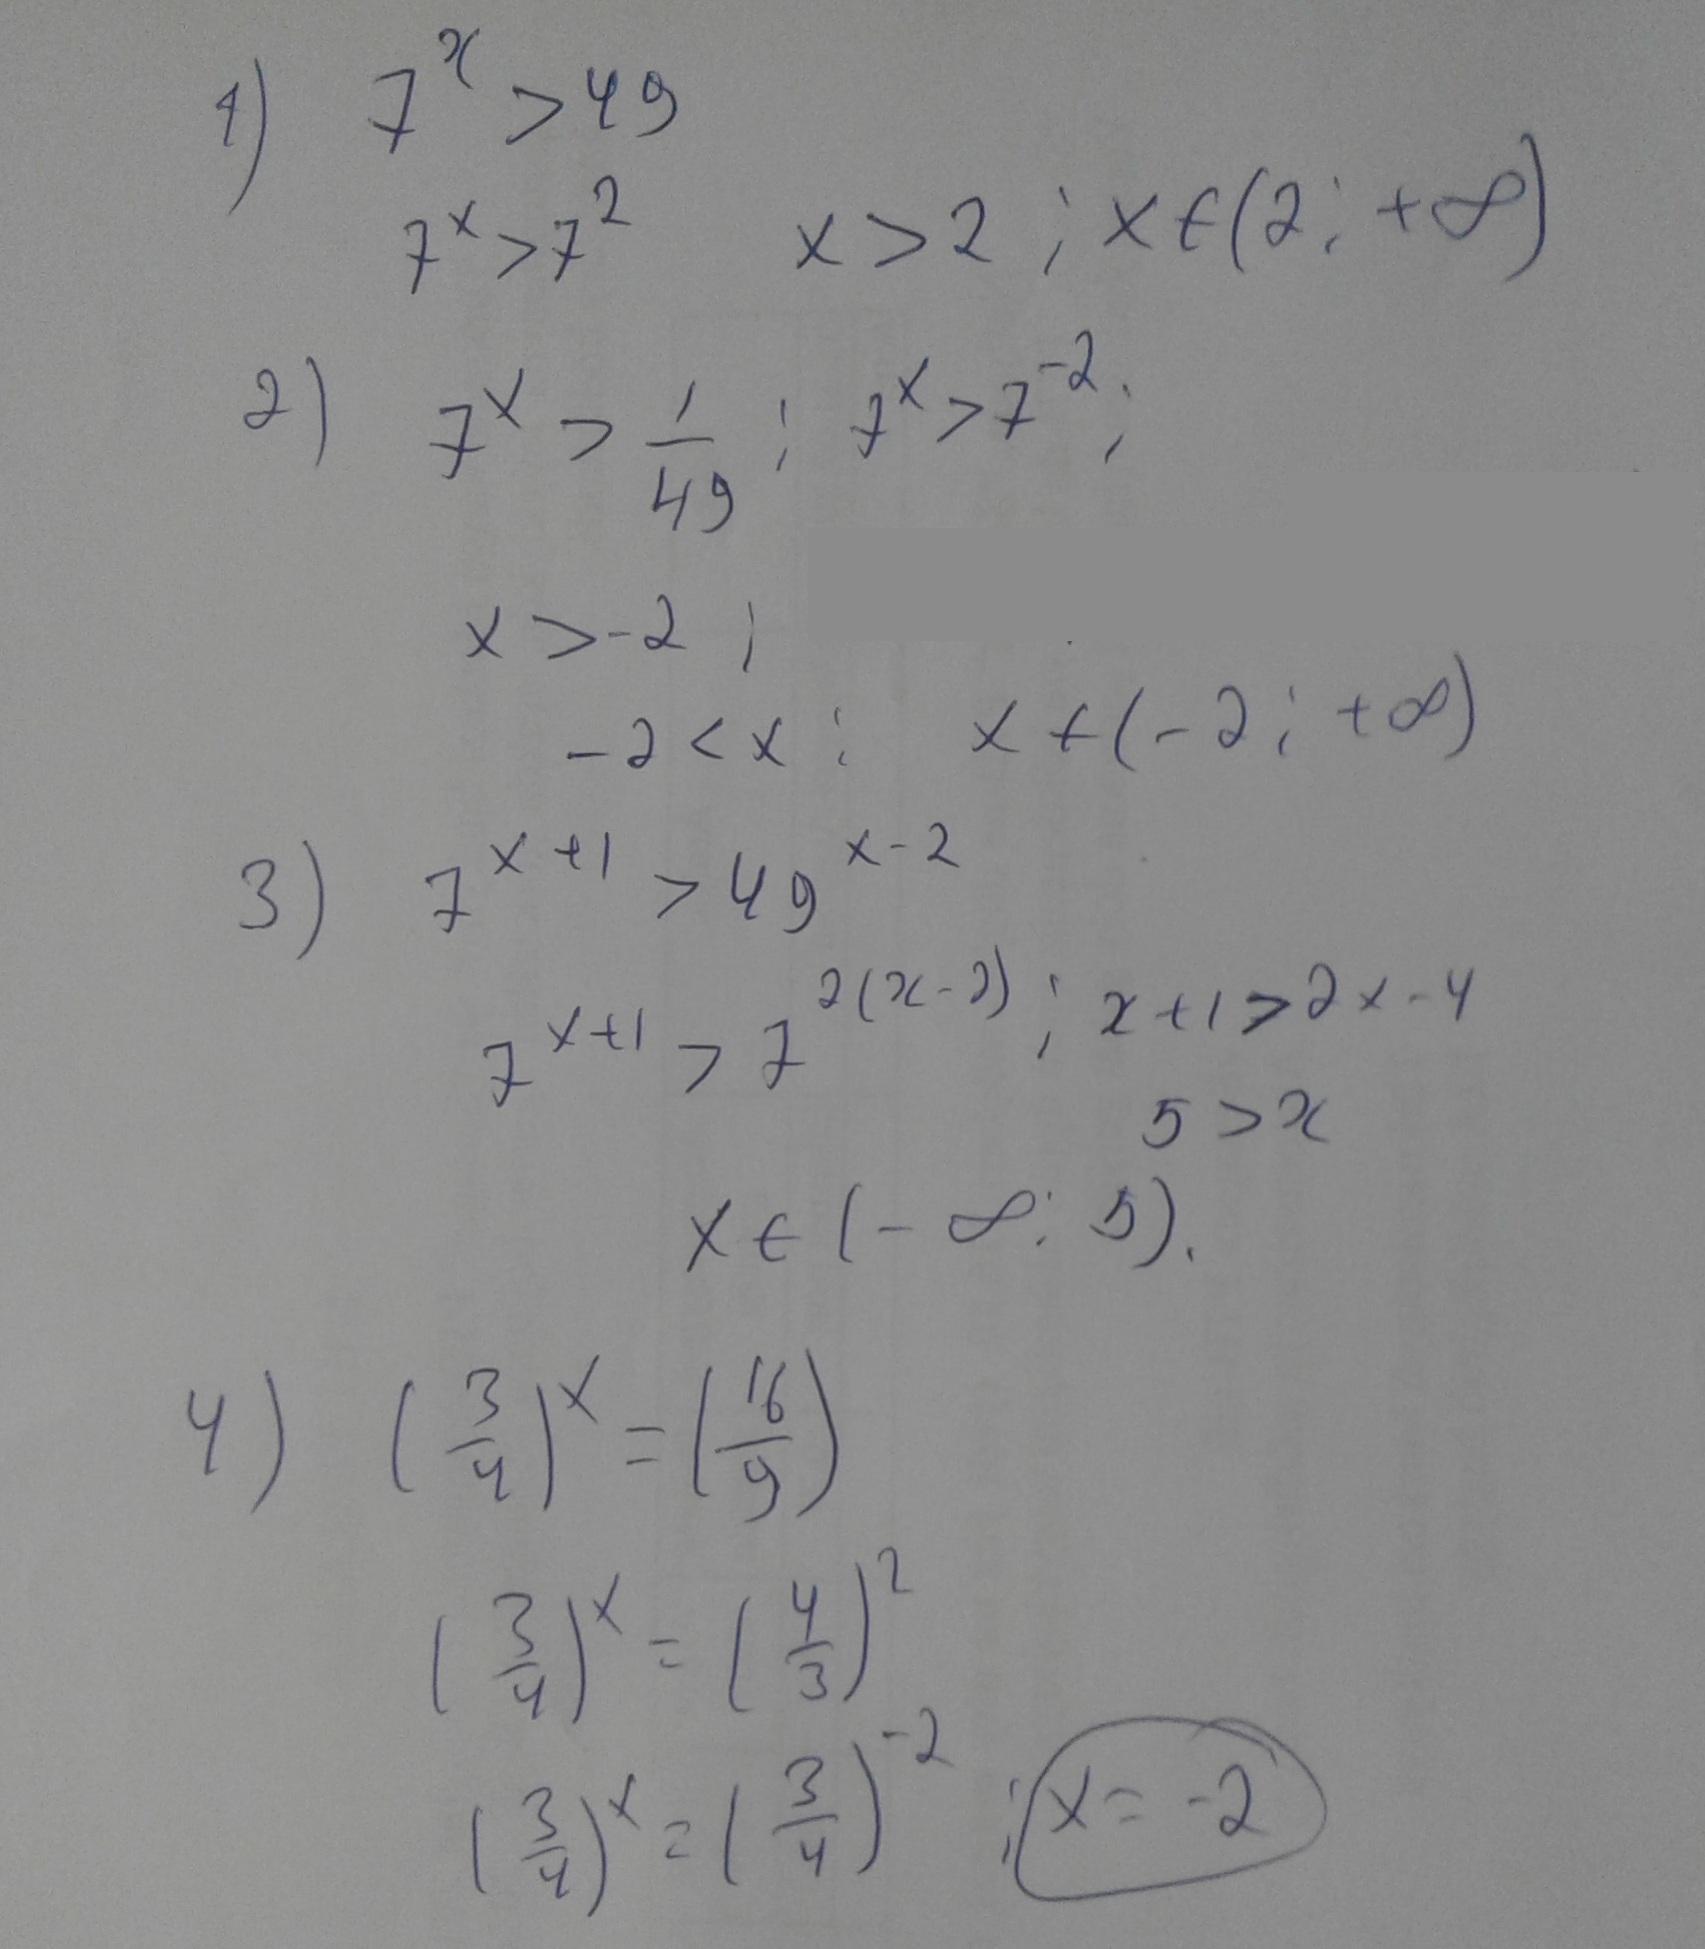 1) 7^x > 49
7^x > 7^2 x > 2 ; x ∈ (2; +∞)
2) 7^x > 1/49 ; 7^x > 7^-2 ;
x > -2 ;
-2 < x ; x ∈ (-2; +∞)
3) 7^x+1 > 49^x-2
7^x+1 > 7^2(x-2) ; x+1 > 2x-4
5 > x
x ∈ (-∞; 5).
4) (3/4)^x = (16/9)
(3/4)^x = (4/3)^2
(3/4)^x = (3/4)^-2 ; x = -2